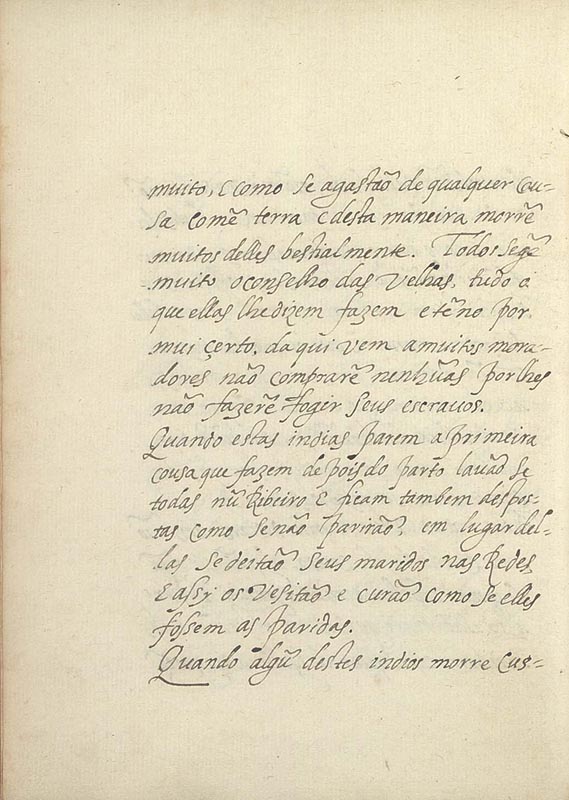 muito, E como se agastaõ de qualquer cou=
sa comẽ terra E desta maneira morrẽ
muitos delles bestialmente. Todos segẽ
muito o conselho das Velhas, tudo o
que ellas lhe dizem fazem e tẽno por
mui çerto. da qui vem a muitos mora-
dores não comprarẽ nenhũas por lhes
não fazerẽ fogir seus escravos.
Quando estas indias parem a primeira
cousa que fazem depois do parto lavão se
todas nũ Ribeiro E ficam tambem despos-
tas como se não parirão, em lugar del-
las se deitaõ seus maridos nas Redes,
E assy os Vesitão e curão como se elles
fossem as paridas.
Quando algũ destes indios morre Cus=